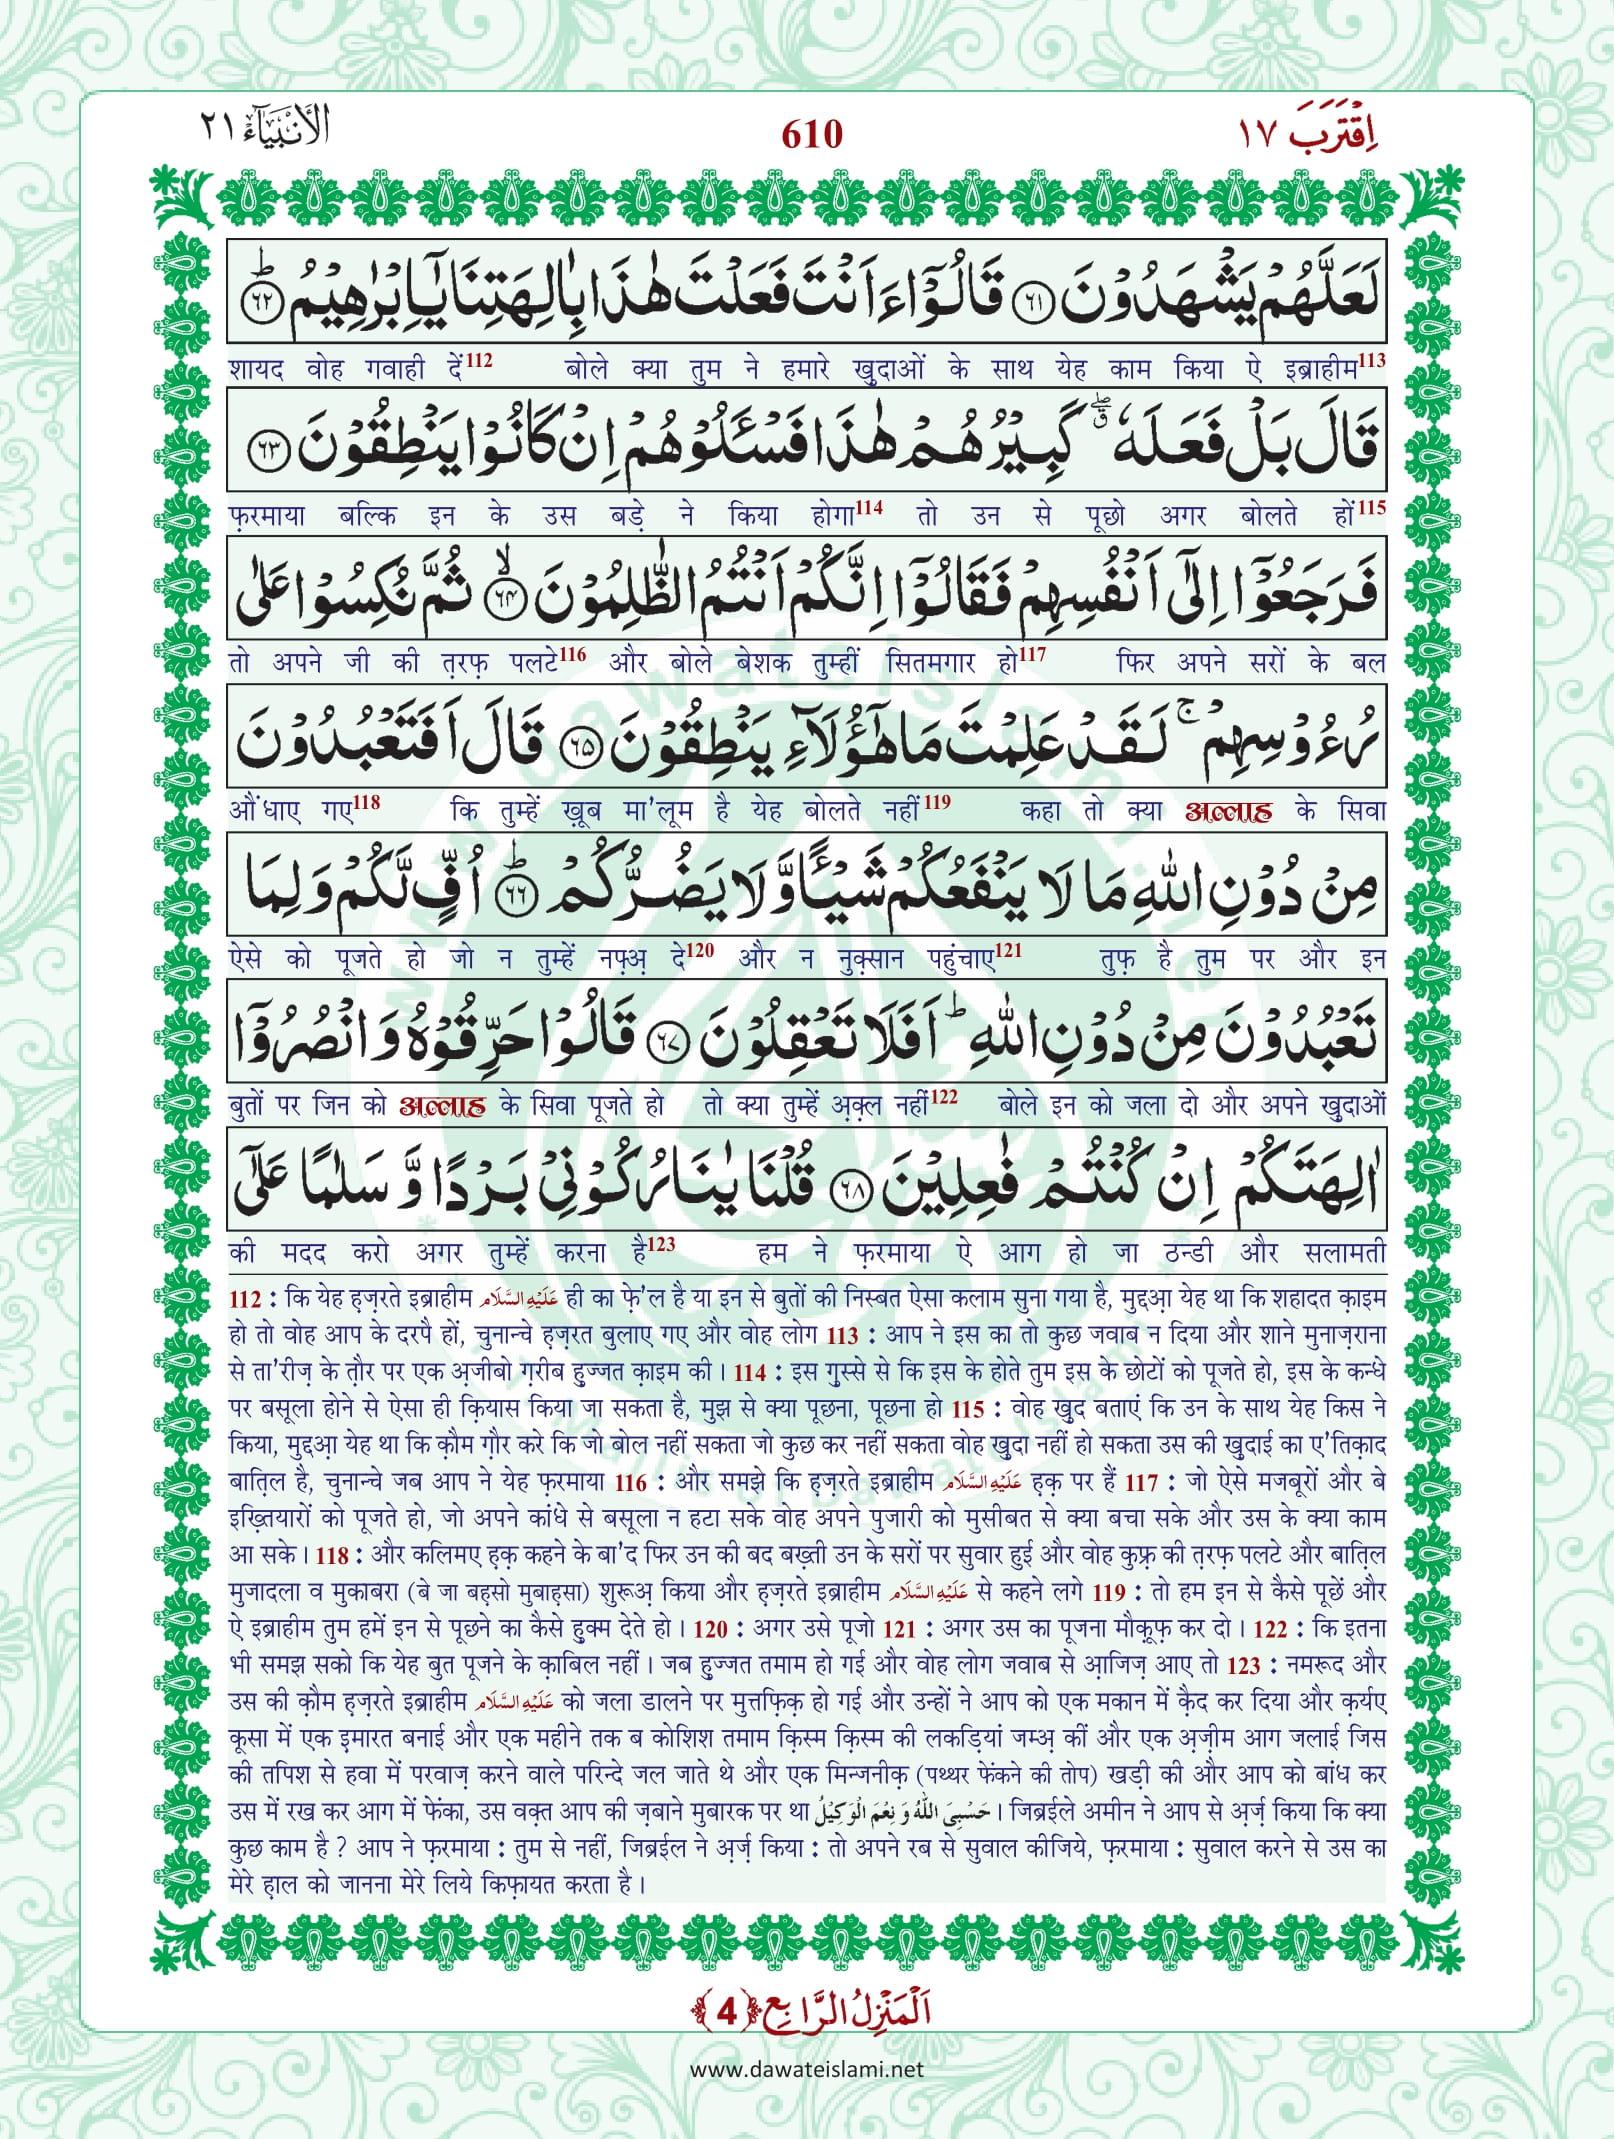 اِقْتَرَبَ ١٧
610
الْاَنْبِيَآء ٢١
لَعَلَّهُمْ يَشْهَدُوْنَ ﴿٦١﴾ قَالُوْۤا ءَاَنْتَ فَعَلْتَ هٰذَا بِاٰلِهَتِنَا يٰۤاِبْرٰهِيْمُ ﴿٦٢﴾ؕ
शायद वोह गवाही दें112 बोले क्या तुम ने हमारे ख़ुदाओं के साथ येह काम किया ऐ इब्राहीम113
قَالَ بَلْ فَعَلَهٗ ۖۗ كَبِيْرُهُمْ هٰذَا فَسْـَٔلُوْهُمْ اِنْ كَانُوْا يَنْطِقُوْنَ ﴿٦٣﴾
फ़रमाया बल्कि इन के उस बड़े ने किया होगा114 तो उन से पूछो अगर बोलते हों115
فَرَجَعُوْۤا اِلٰۤى اَنْفُسِهِمْ فَقَالُوْۤا اِنَّكُمْ اَنْتُمُ الظّٰلِمُوْنَ ﴿٦٤﴾ۙ ثُمَّ نُكِسُوْا عَلٰى
तो अपने जी की त़रफ़ पलटे116 और बोले बेशक तुम्हीं सितमगार हो117 फिर अपने सरों के बल
رُءُوْسِهِمْ ۚ لَقَدْ عَلِمْتَ مَا هٰۤؤُلَآءِ يَنْطِقُوْنَ ﴿٦٥﴾ قَالَ اَفَتَعْبُدُوْنَ
औंधाए गए118 कि तुम्हें ख़ूब मा'लूम है येह बोलते नहीं119 कहा तो क्या अल्लाह के सिवा
مِنْ دُوْنِ اللّٰهِ مَا لَا يَنْفَعُكُمْ شَيْـًٔا وَّ لَا يَضُرُّكُمْ ﴿٦٦﴾ؕ اُفٍّ لَّكُمْ وَ لِمَا
ऐसे को पूजते हो जो न तुम्हें नफ़्अ़ दे120 और न नुक़्सान पहुंचाए121 तुफ़ है तुम पर और इन
تَعْبُدُوْنَ مِنْ دُوْنِ اللّٰهِ ؕ اَفَلَا تَعْقِلُوْنَ ﴿٦٧﴾ قَالُوْا حَرِّقُوْهُ وَ انْصُرُوْۤا
बुतों पर जिन को अल्लाह के सिवा पूजते हो तो क्या तुम्हें अ़क़्ल नहीं122 बोले इन को जला दो और अपने ख़ुदाओं
اٰلِهَتَكُمْ اِنْ كُنْتُمْ فٰعِلِيْنَ ﴿٦٨﴾ قُلْنَا يٰنَارُ كُوْنِيْ بَرْدًا وَّ سَلٰمًا عَلٰۤى
की मदद करो अगर तुम्हें करना है123 हम ने फ़रमाया ऐ आग हो जा ठन्डी और सलामती
112 : कि येह ह़ज़रते इब्राहीम عَلَيْهِ السَّلَام ही का फ़े'ल है या इन से बुतों की निस्बत ऐसा कलाम सुना गया है, मुद्दआ़ येह था कि शहादत क़ाइम
हो तो वोह आप के दरपै हों, चुनान्चे ह़ज़रत बुलाए गए और वोह लोग 113 : आप ने इस का तो कुछ जवाब न दिया और शाने मुनाज़राना
से ता'रीज़ के त़ौर पर एक अ़जीबो ग़रीब हुज्जत क़ाइम की । 114 : इस ग़ुस्से से कि इस के होते तुम इस के छोटों को पूजते हो, इस के कन्धे
पर बसूला होने से ऐसा ही क़ियास किया जा सकता है, मुझ से क्या पूछना, पूछना हो 115 : वोह ख़ुद बताएं कि उन के साथ येह किस ने
किया, मुद्दआ़ येह था कि क़ौम ग़ौर करे कि जो बोल नहीं सकता जो कुछ कर नहीं सकता वोह ख़ुदा नहीं हो सकता उस की ख़ुदाई का ए'तिक़ाद
बात़िल है, चुनान्चे जब आप ने येह फ़रमाया 116 : और समझे कि ह़ज़रते इब्राहीम عَلَيْهِ السَّلَام ह़क़ पर हैं 117 : जो ऐसे मजबूरों और बे
इख़्तियारों को पूजते हो, जो अपने कांधे से बसूला न हटा सके वोह अपने पुजारी को मुसीबत से क्या बचा सके और उस के क्या काम
आ सके । 118 : और कलिमए ह़क़ कहने के बा'द फिर उन की बद बख़्ती उन के सरों पर सुवार हुई और वोह कुफ़्र की त़रफ़ पलटे और बात़िल
मुजादला व मुकाबरा (बे जा बह़सो मुबाह़सा) शुरूअ़ किया और ह़ज़रते इब्राहीम عَلَيْهِ السَّلَام से कहने लगे 119 : तो हम इन से कैसे पूछें और
ऐ इब्राहीम तुम हमें इन से पूछने का कैसे हुक्म देते हो । 120 : अगर उसे पूजो 121 : अगर उस का पूजना मौक़ूफ़ कर दो । 122 : कि इतना
भी समझ सको कि येह बुत पूजने के क़ाबिल नहीं । जब हुज्जत तमाम हो गई और वोह लोग जवाब से आ़जिज़ आए तो 123 : नमरूद और
उस की क़ौम ह़ज़रते इब्राहीम عَلَيْهِ السَّلَام को जला डालने पर मुत्तफ़िक़ हो गई और उन्हों ने आप को एक मकान में क़ैद कर दिया और क़र्यए
कूसा में एक इ़मारत बनाई और एक महीने तक ब कोशिश तमाम क़िस्म क़िस्म की लकड़ियां जम्अ़ कीं और एक अ़ज़ीम आग जलाई जिस
की तपिश से हवा में परवाज़ करने वाले परिन्दे जल जाते थे और एक मिन्जनीक़ (पथ्थर फेंकने की तोप) खड़ी की और आप को बांध कर
उस में रख कर आग में फेंका, उस वक़्त आप की ज़बाने मुबारक पर था حَسْبِىَ اللّٰهُ وَ نِعْمَ الْوَكِيْلُ । जिब्रईले अमीन ने आप से अ़र्ज़ किया कि क्या
कुछ काम है ? आप ने फ़रमाया : तुम से नहीं, जिब्रईल ने अ़र्ज़ किया : तो अपने रब से सुवाल कीजिये, फ़रमाया : सुवाल करने से उस का
मेरे ह़ाल को जानना मेरे लिये किफ़ायत करता है ।
اَلْمَنْزِلُ الرَّابِع ﴿4﴾
www.dawateislami.net